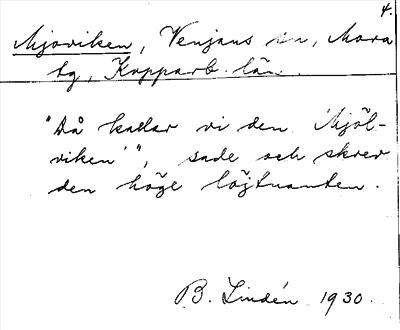 4.
Mjoviken, Venjans sn, Mora
tg, Kopparb. län.
"Då kallar vi den 'Mjöl-
viken'", sade och skrev
den höge löjtnanten.
B. Lindén 1930.